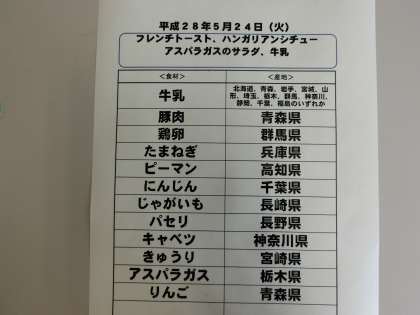 平成２８年５月２４日（火）
フレンチトースト、ハンガリアンシチュー
アスパラガスのサラダ、牛乳
＜食材＞ ＜産地＞
牛乳 北海道、青森、岩手、宮城、山
形、埼玉、栃木、群馬、神奈川、
静岡、千葉、福島のいずれか
豚肉 青森県
鶏卵 群馬県
たまねぎ 兵庫県
ピーマン 高知県
にんじん 千葉県
じゃがいも 長崎県
パセリ 長野県
キャベツ 神奈川県
きゅうり 宮崎県
アスパラガス 栃木県
りんご 青森県